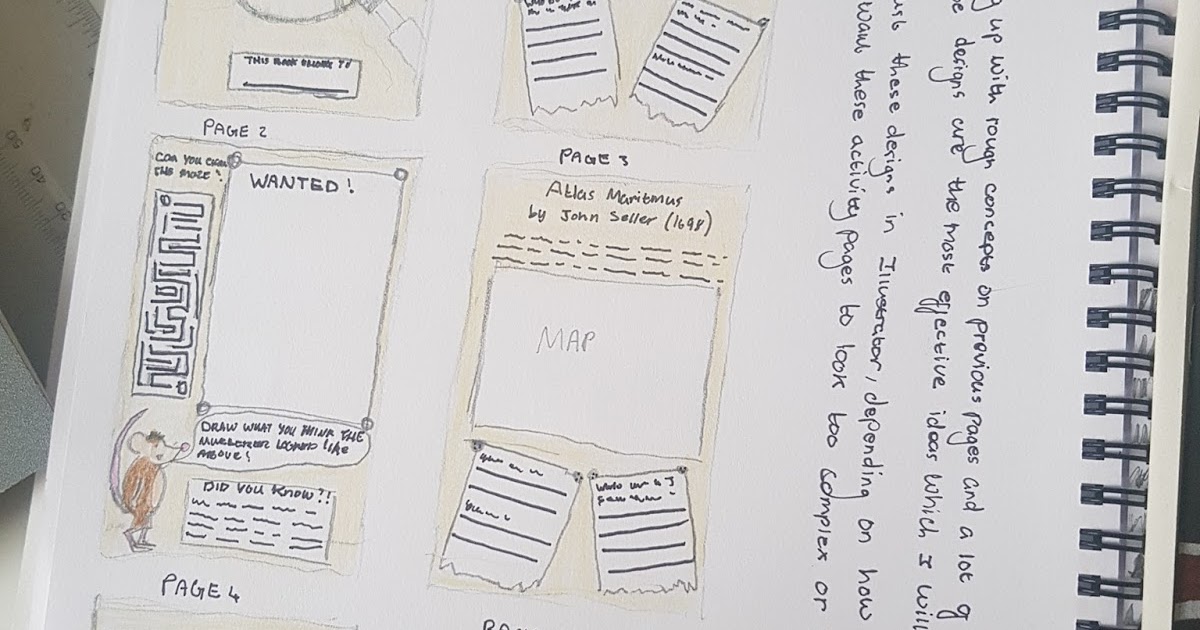 THIS BOOK BELONGS TO
PAGE 2
PAGE 3
CAN YOU
THIS MAZE?
WANTED!
DRAW WHAT YOU THINK THE
MURDERER LOOKED LIKE
ABOVE!
DID YOU KNOW?!
PAGE 4
Atlas Maritmus
by John Seller (1698)
MAP
up with rough concepts on previous pages and a lot
designs are the most effective ideas which I will
these designs in Illustrator, depending on how
want these activity pages to look too complex or